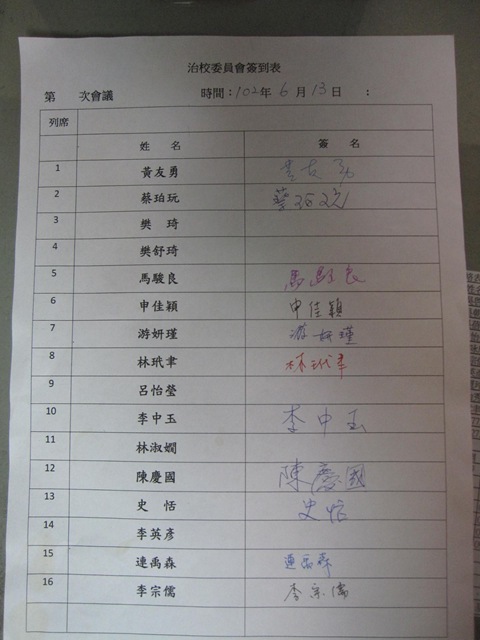 治校委員會簽到表
第 次會議 時間：102年 6 月 13 日 ：
列席
姓 名 簽 名
1 黃友勇 黃友勇
2 蔡珀玩 蔡珀玩
3 樊 琦
4 樊舒琦
5 馬駿良 馬駿良
6 申佳穎 申佳穎
7 游妍瑾 游妍瑾
8 林玳聿 林玳聿
9 呂怡瑩
10 李中玉 李中玉
11 林淑嫺
12 陳慶國 陳慶國
13 史 恬 史恬
14 李英彥
15 連禹森 連禹森
16 李宗儒 李宗儒